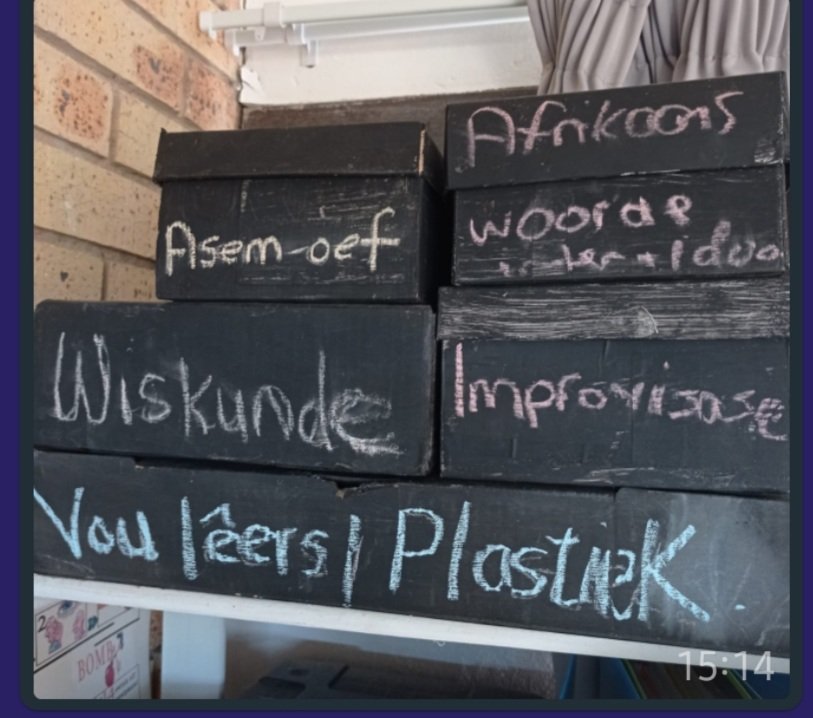 Afrikaans
woorde
Asem-oef
Wiskunde
Improvisasie
Vou lêers | Plastiek.
2
BOMB
15:14